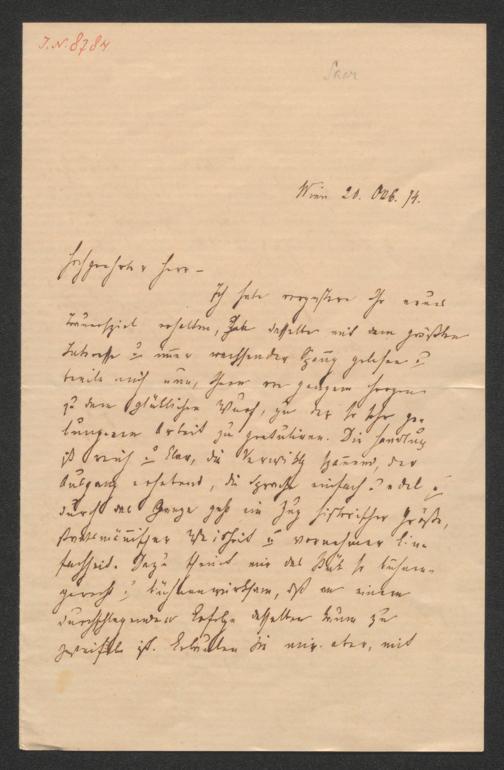 J.N. 8784
Saar
Wien 20. Okt. 74.
Hochgeehrter Herr –
Ich habe vorgestern Ihr neues
Trauerspiel erhalten, habe dasselbe mit dem größten
Interesse u immer wachsender Spang gelesen u
beeile mich nun, Ihnen von ganzem Herzen
zu dem glücklichen Wurf, zu der so sehr ge-
lungenen Arbeit zu gratuliren. Die Handlung
ist reich u klar, die Verwicklg spannend, der
Ausgang erhebend, die Sprache einfach u edel u
durch das Ganze geht ein Zug historischer Größe,
staatsmännischer Weisheit u vornehmer Ein-
fachheit. Dazu scheint mir das Stück so bühnen-
gerecht u bühnenwirksam, daß an einem
durchschlagenden Erfolge desselben kaum zu
zweifeln ist. Erlauben Sie mir aber, mit